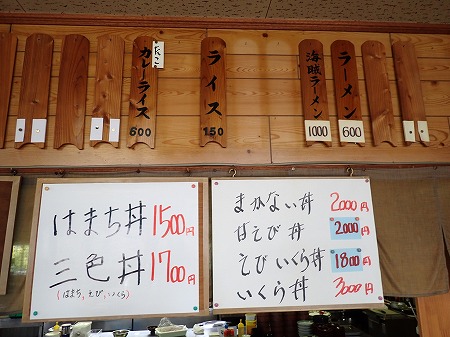 たこ
カレーライス
600
ライス
150
海賊ラーメン
1000
ラーメン
600
はまち丼 1500円
三色丼 1700円
(はまち、えび、いくら)
まかない丼 2000円
甘えび丼 2000円
えびいくら丼 1800円
いくら丼 3000円